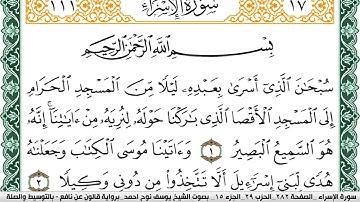 ١٧ سُورَةُ الإِسْرَاءِ ١١١
بِسْمِ اللَّهِ الرَّحْمَٰنِ الرَّحِيمِ
سُبْحَٰنَ اَ۬لذِےٓ أَسْر۪يٰ بِعَبْدِهِۦ لَيْلاٗ مِّنَ اَ۬لْمَسْجِدِ اِ۬لْحَرَامِ
إِلَى اَ۬لْمَسْجِدِ اِ۬لَاقْصَا اَ۬لذِے بَٰرَكْنَا حَوْلَهُۥ لِنُرِيَهُۥ مِنَ اٰيَٰتِنَآۖ إِنَّهُۥ
هُوَ اَ۬لسَّمِيعُ اُ۬لْبَصِيرُ ١ وَءَاتَيْنَا مُوسَى اَ۬لْكِتَٰبَ وَجَعَلْنَٰهُ
هُدىٗ لِّبَنِےٓ إِسْرَآءِيلَ أَلَّا تَتَّخِذُواْ مِن دُونِے وَكِيلاٗ ٢
سورة الإسراء . الصفحة ٢٨٢ الحزب ٢٩ . الجزء ١٥ . بصوت الشيخ يوسف نوح أحمد . برواية قالون عن نافع - بالتوسيط والصلة